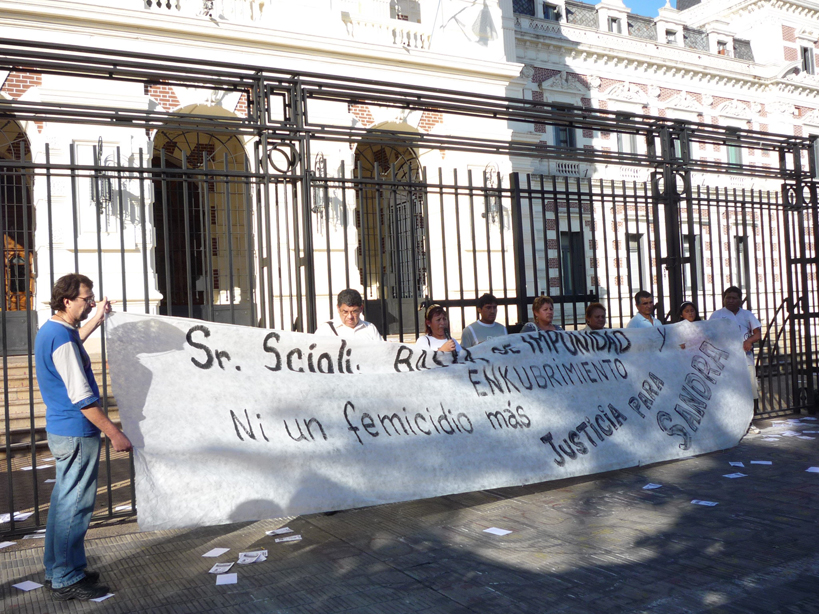 Sr. Scioli. BASTA DE IMPUNIDAD Y
ENKUBRIMIENTO
Ni un femicidio más
JUSTICIA PARA
SANDRA